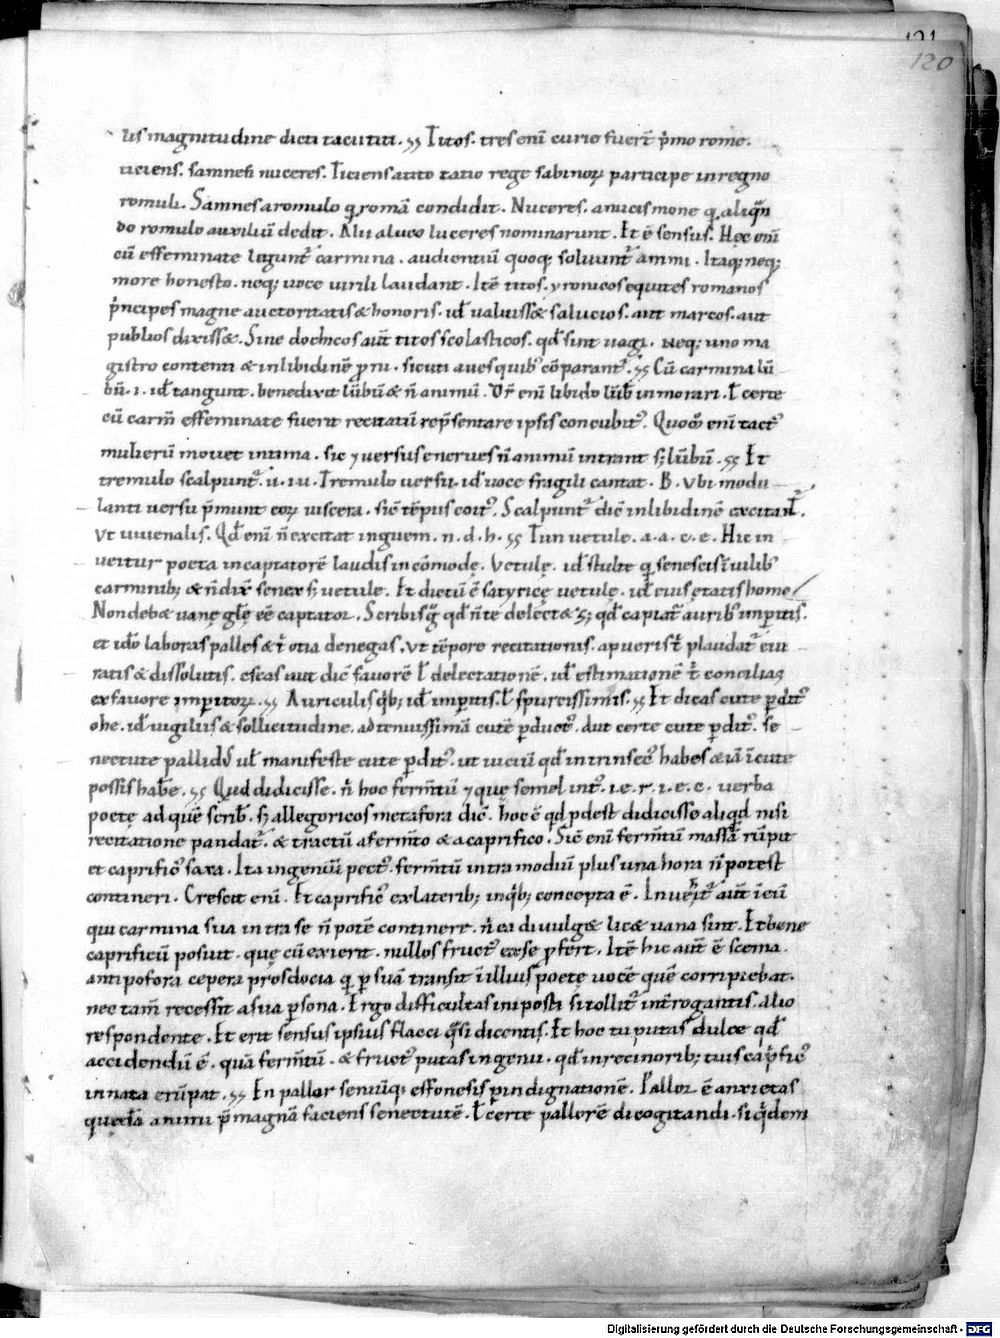 121
120
lis magnitudine dicti tacu titi. Titos. tres eni curie fuer̄ p̄mo rome.
ticiens. samnes nuceres. Ticiens a tito tatio rege sabinoꝝ participe in regno
romuli. Samnes a romulo q̄ romā condidit. Nuceres. amicis mone q̄ aliqn̄
do romulo auxiliū dedit. Alii a luco luceres nominarunt. Et ē sensus. Hęc enī
cū effeminate legunt̄ carmina. audientiū quoq; soluunt̄ animi. Itaq; neq;
more honesto. neq; uoce uirili laudant. Itē titos. yronicos equites romanos
p̄ncipes magne auctoritatis & honoris. id ualuiss& salucios. aut marcos. aut
publios dixiss&. Sine dochcos aut̄ titos scolasticos. qd̄ sint uagi. neq; uno ma
gistro contenti & in libidinē proni. sicuti aues quib; cōparant̄. Cū carmina lū
bū. i. id tangunt. benedixit lūbū & n̄ animū. Or̄ enī libido lūb̄ inmorari. ł certe
cū carm̄ effeminate fuerit recitatū rep̄sentare ipsis concubit᷒. Quō enī tact᷒
mulierū mouet intima. sic & uersus enerues n̄ animū intrant s; lūbū. Et
tremulo scalpunt᷒. u. i. u. Tremulo uersu. id uoce fragili cantat. B. Vbi modu
lanti uersu p̄munt eoꝝ uiscera. sic tēpus coit᷒. Scalpunt᷒ dic̄ in libidinē excitant᷒.
Vt iuuenalis. Qd̄ enī n̄ excitat inguem. n. d. h. Tun uetule. a. a. c. e. Hic in
ueitur poeta in captatorē laudis incōmodę. Vetulę. id stulte q̄ senescis ī uilib᷒
carminib; & n̄ dix̄ senex s; uetule. Et dictū ē satyricę uetule. id eius ętatis homo
Non debae uanę glę ēē captator. Scribis g̊ qd̄ n̄ te delect& s; qd̄ capiat᷒ aurib᷒ inperitis.
et ideo laboras palles & t̄ otia denegas. Vt tēpore recitationis. a pueris t̄ plaudat᷒ eui
ratis & dissolutis. escas aut dic̄ fauorē ł delectationē. ul̄ estimationē t̄ concilias
ex fauore imperitoꝝ. Auriculis q̄b; id imperitis. ł spurcissimis. Et dicas cute perdit᷒
ohe. id uigiliis & sollicitudine. ad tenuissimā cutē perduct᷒. Aut certe cute perdit᷒. se
nectute pallid᷒ ul̄ manifeste cute perdit᷒. ut uiciū qd̄ intrinsec᷒ habes & iā ī cute
possis hab̄e. Quid didicisse. n̄ hoc ferm̄tū & quę semel int᷒. i. e. r. i. e. c. uerba
poetę ad quē scrib̄. s; allegoricos metafora dic̄. hoc ē qd pdest didicisse aliqd nisi
recitatione pandat᷒. & tractū a ferm̄to & a caprifico. Sic enī ferm̄tū massā rūpit
et caprific᷒ saxa. Ita ingeniū pect᷒. ferm̄tū intra modiū plus una hora n̄ potest
contineri. Crescit enī. Et caprific᷒ ex laterib; inq̄b; concepta ē. Inuehit᷒ aut̄ ī eū
qui carmina sua intra se n̄ potē continere. n̄ ea diuulg& lic& uana sint. Et bene
caprificū posuit. quę cū exierit. nullos fruct᷒ ex se pfert. Itē hic aut̄ ē scema
antipofora cepera prosdocia q̄ p suā transit ī illius poetę uocē quē corripiebat.
nec tam̄ recessit a sua psona. Ergo difficultas inposti si tollit᷒ int̄rogantis. alio
respondente. Et erit sensus ipsius flacci q̄si dicentis. Et hoc tu putas dulce qd̄
accidendū ē. quā ferm̄tū. & fruct᷒ putas ingenii. qd̄ in recinorib; tuis cap̄fic᷒
innata erūpat. En pallor seniūq; effonesis p indignationē. Pallor ē anxietas
quedā animi p̄ magnā faciens senectutē. ł certe pallorē dic̄ cogitandi. si q̄dem
Digitalisierung gefördert durch die Deutsche Forschungsgemeinschaft - DFG